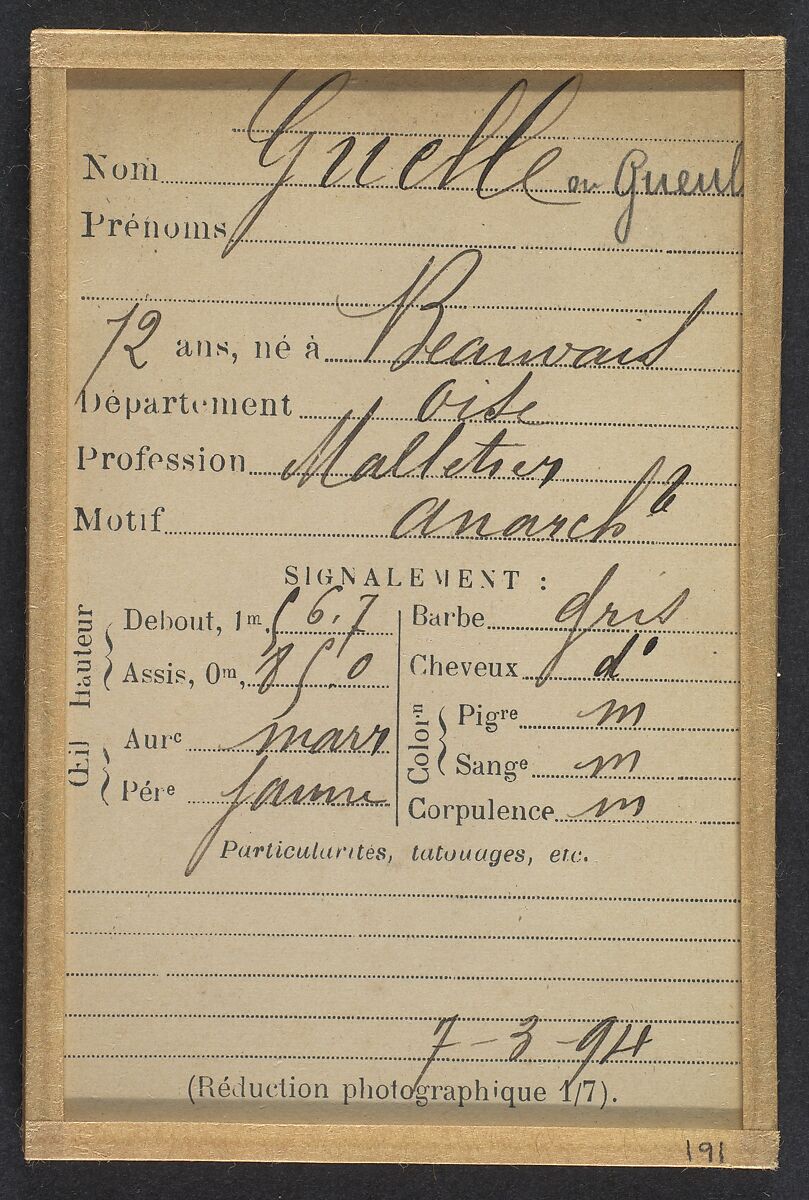 Nom Guelle ou Gueul
Prénoms
72 ans, né à Beauvais
Département Oise
Profession Malletier
Motif anarch
SIGNALEMENT :
Hauteur
Debout, 1m, 56.7
Assis, 0m, 85.0
Œil
Aure marr
Pére jaune
Barbe gris
Cheveux do
Colorn
Pigre m
Sange m
Corpulence m
Particularités, tatouages, etc.
7-3-94
(Réduction photographique 1/7).
191